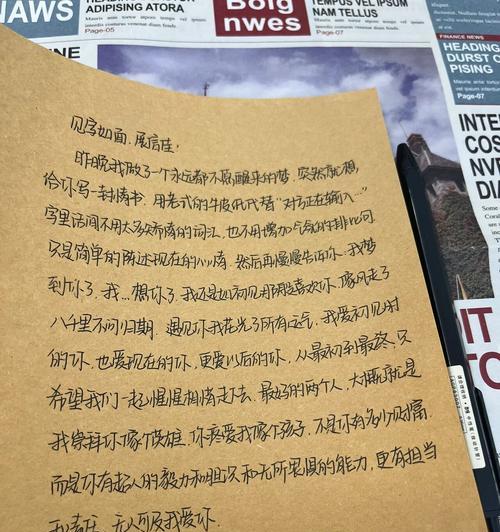 NAWS
ADIPISING ATORA
Mauris ante tortor aliquet diam
interdis consectetur diam fends.
Page-05
Bolg
nwes
TEMPOR VEL IPSUM
NAM TELLUS
Page-07
FINANCE NEWS
HEADING
DURST C
PISING
Page-07
INTER
COS
NV
IT
T
见字如面，展信佳：
昨晚我做了一个永远都不愿醒来的梦，突然就想，
给你写一封情书，用老式的牛皮纸代替“对方正在输入…”
字里话间不用太多稀奇的词汇，也不用增加气氛的排比句
只是简单的陈述现在的心情，然后再慢慢告诉你，我梦
到你了，我…想你了，我还是如初见那般喜欢你，像风走了
八千里不问归期，遇见你我花光了所有运气，我爱初见时
的你，也爱现在的你，更爱以后的你，从最初到最终，只
希望我们一起惺惺相惜走下去，最好的两个人，大概就是
我崇拜你像个英雄，你疼爱我像个孩子，不是你有多少财富，
而是你有超人的毅力和胆识和无所畏惧的能力，更有担当
和责任，无人所及我爱你.